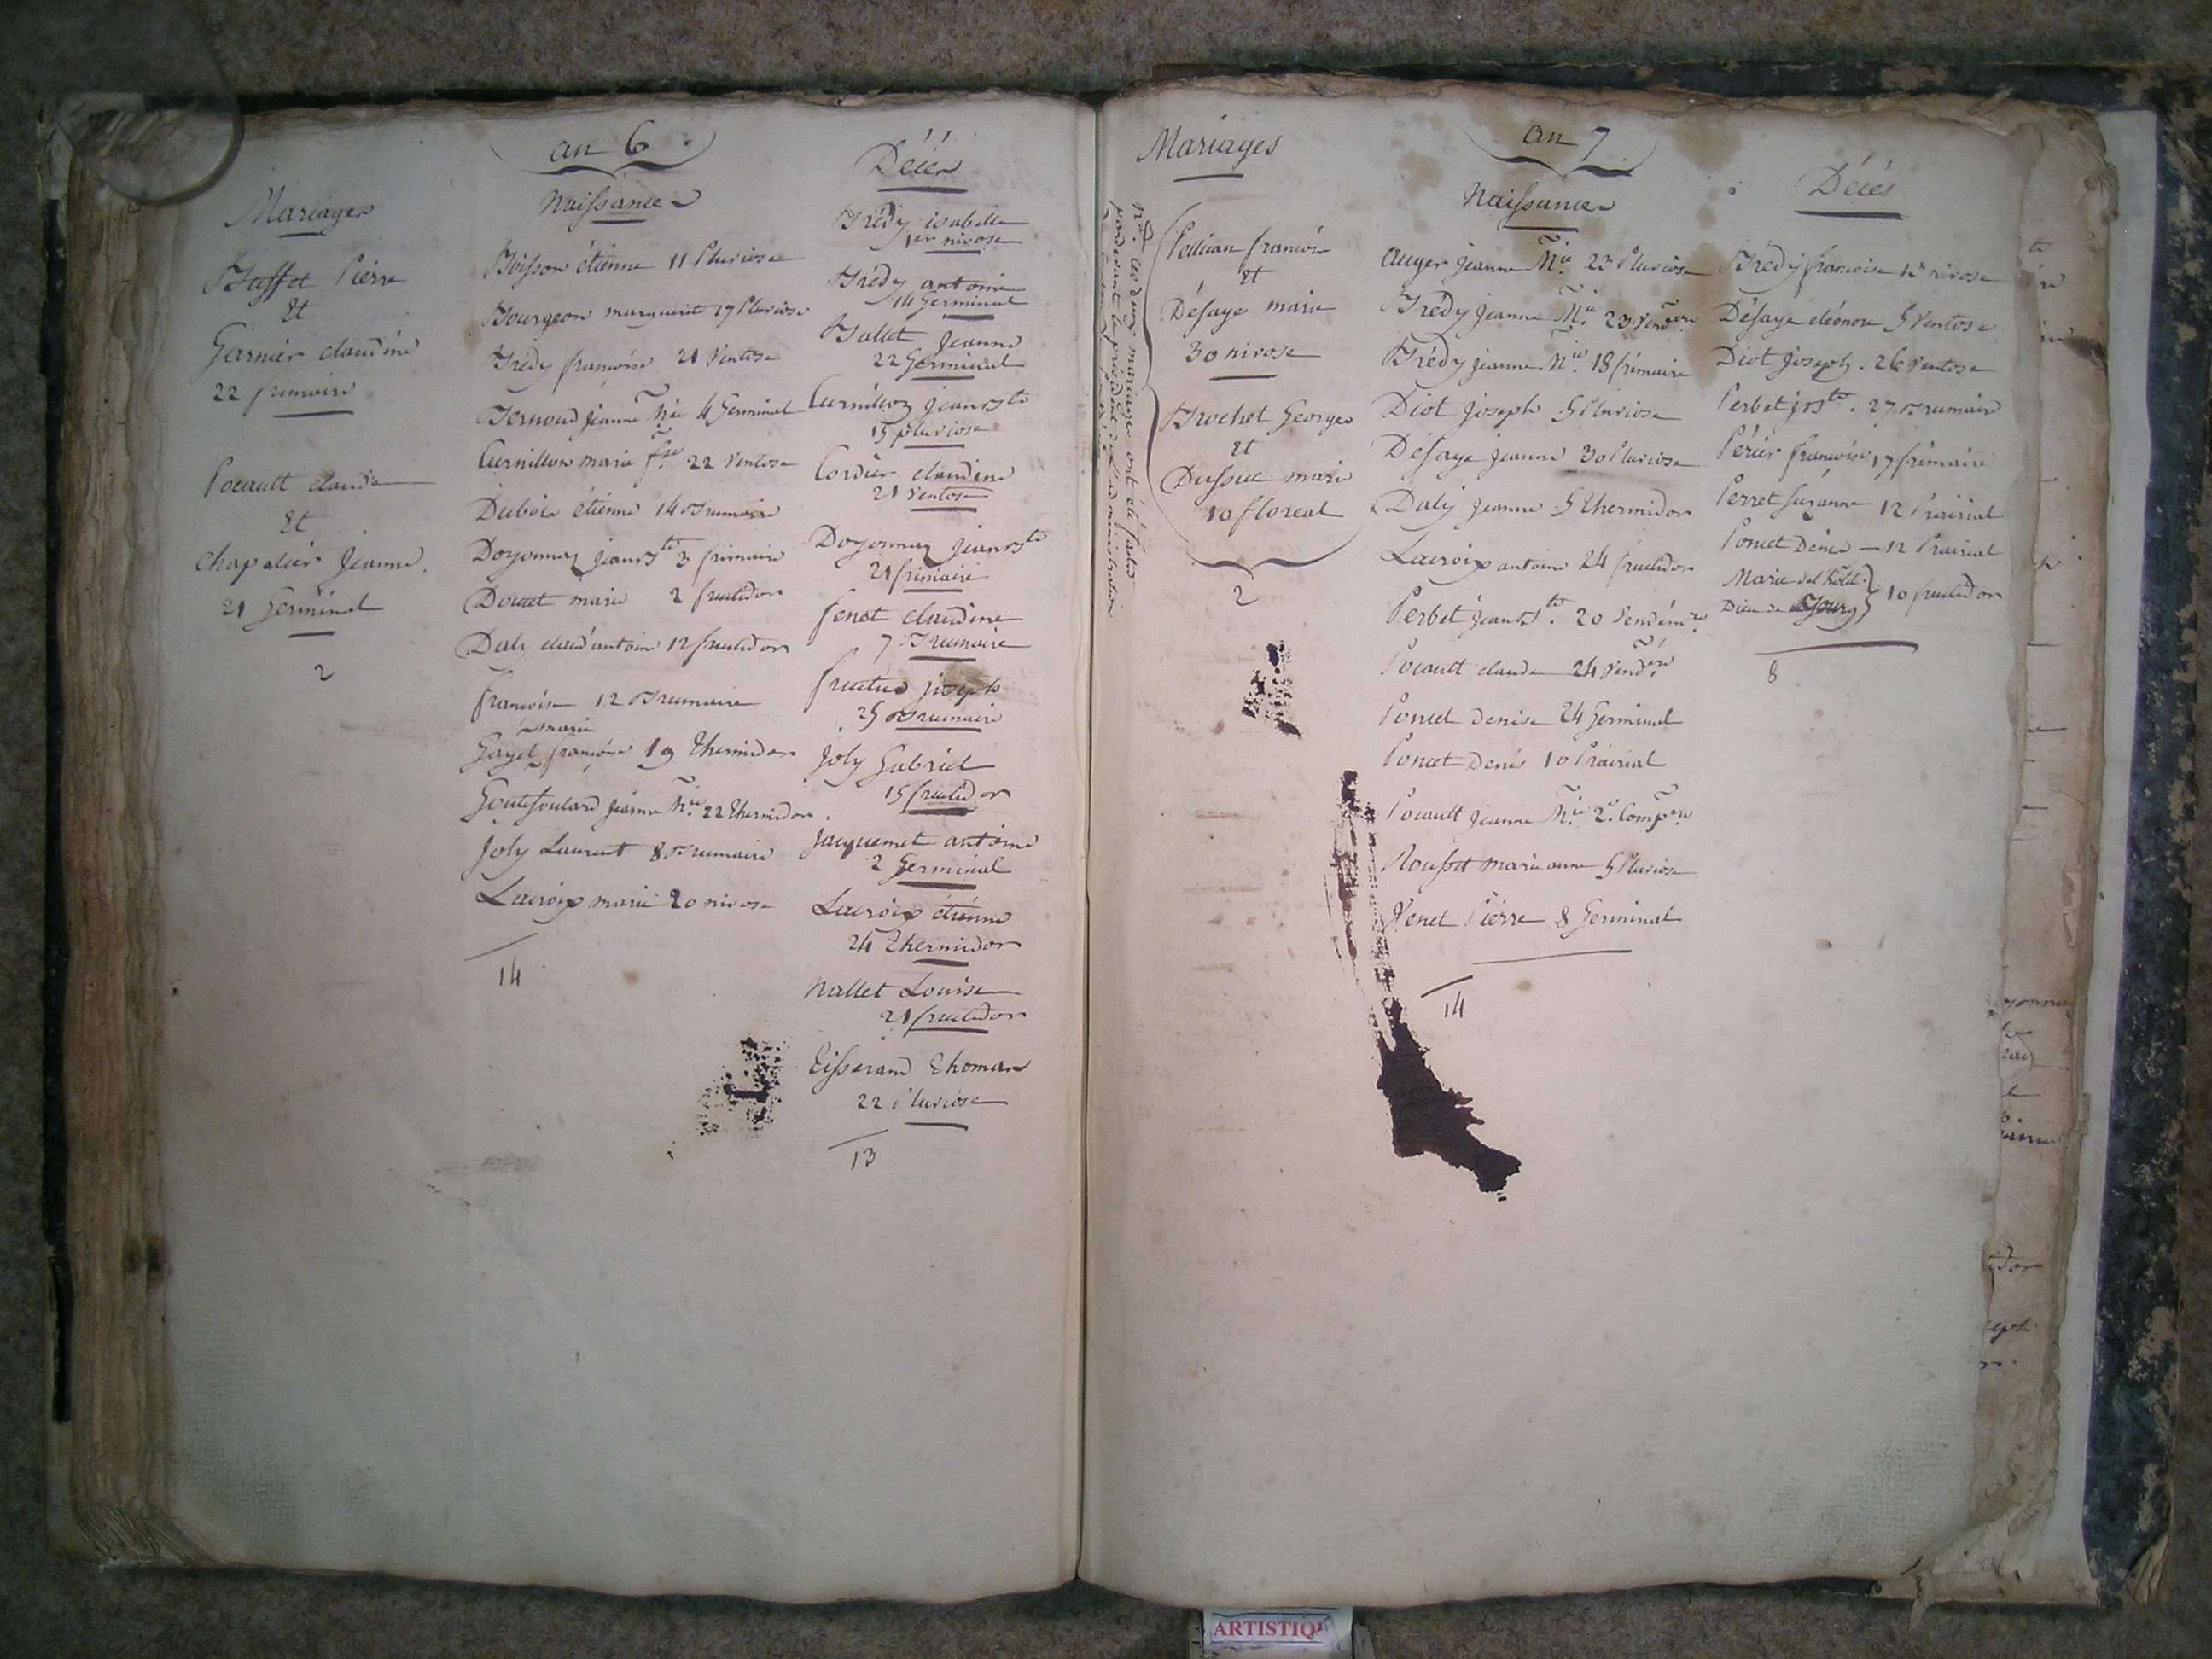 an 6
Mariages
Buffet Pierre
Et
Garnier claudine
22 frimaire
Pocault claudine
Et
Chapelier Jeanne.
21 Germinal
2
Naissances
Boisson étienne 11 Pluviose
Bourgeon marguerite 17 Pluviose
Brédy françoise 21 Ventose
Bernoud jeanne Mie 4 Germinal
Curnillon marie fse 22 Ventose
Dubois étienne 14 Brumaire
Doyonnax jean Bte 3 frimaire
Doucet marie 2 fructidor
Daly claud'antoine 12 fructidor
françoise 12 Brumaire
marie
Gayet françoise 19 Thermidor
Goutefoulard jeanne Mie 22 Thermidor
Joly Laurent 8 Brumaire
Lacroix marie 20 nivose
14
Décés
Brédy isabelle
1er nivose
Brédy antoine
14 Germinal
Ballet Jeanne
22 Germinal
Curnillon jean Bte
15 pluviose
Cordier claudine
21 Ventose
Doyonnax jean Bte
21 frimaire
fenet claudine
7 Brumaire
joseph
25 Brumaire
Joly Gabriel
15 fructidor
Jacquemet antoine
2 Germinal
Lacroix étienne
24 Thermidor
Nallet Louise
21 fructidor
Tisserand Thomas
22 Pluviose
13
an 7
Mariages
Nta. Ces deux mariages ont été faites
pardevant le président de l'administration
Pelliean françois
Et
Désaye marie
30 nivose
Brochet George
Et
Dussuc marie
10 floreal
2
Naissances
Auger Jeanne Mie 23 Pluviose
Brédy Jeanne Mie 23 Vendre
Brédy jeanne Mie 18 frimaire
Diot joseph 5 Pluviose
Désaye jeanne 30 Pluviose
Daly Jeanne 5 Thermidor
Lacroix antoine 24 fructidor
Perbet jean Bte 20 Vendémre
Pocault claude 24 Vendre
Poncet denise 24 Germinal
Poncet Denis 10 Prairial
Pocault Jeanne Mie 2e Compre
Rousset marieanne 5 Pluviose
Venet Pierre 8 Germinal
14
Décés
Brédy françoise 13 nivose
Désaye éléonore 5 Ventose
Diot joseph. 26 Ventose
Perbet jn Bte. 27 Brumaire
Périer françoise 17 frimaire
Perret Suzanne 12 Prairial
Poncet Denis — 12 Prairial
Marie del'hôtel
Dieu de Bourg 10 fructidor
8
ARTISTIQ